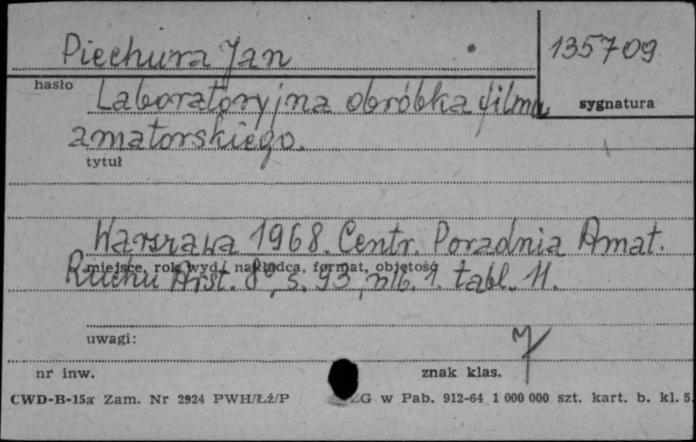 Piechura Jan
135709
hasło
sygnatura
Laboratoryjna obróbka filmu
amatorskiego.
tytuł
Warszawa 1968. Centr. Poradnia Amat.
Ruchu Art. 8°, s. 93, nlb. 1. tabl. 11.
miejsce, rok wyd., nakładca, format, objętość
uwagi:
nr inw.
znak klas.
CWD-B-15a Zam. Nr 2924 PWH/Łź/P
ZG w Pab. 912-64 1 000 000 szt. kart. b. kl. 5.